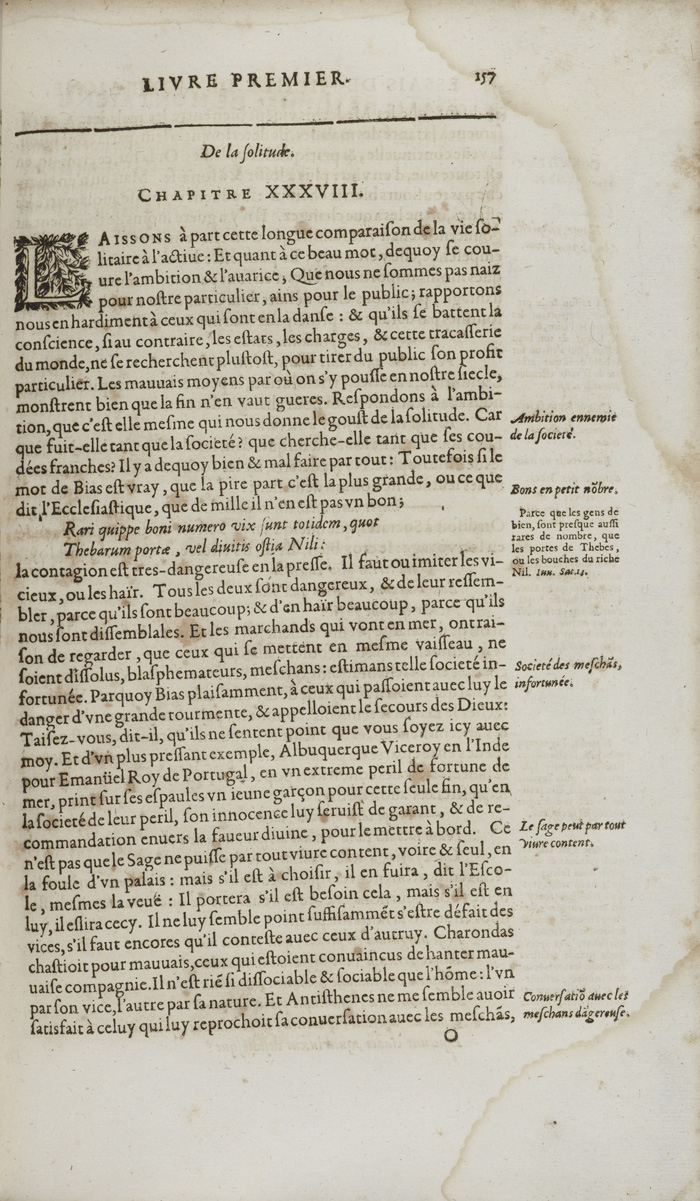 LIVRE PREMIER. 157
De la ſolitude.
CHAPITRE XXXVIII.
LAISSONS à part cette longue comparaiſon de la vie ſo-
litaire à l'actiue: Et quant à ce beau mot, dequoy ſe cou-
ure l'ambition & l'auarice, Que nous ne ſommes pas naiz
pour noſtre particulier, ains pour le public; rapportons
nous en hardiment à ceux qui ſont en la danſe: & qu'ils ſe battent la
conſcience, ſi au contraire, les eſtats, les charges, & cette tracaſſerie
du monde, ne ſe recherchent pluſtoſt, pour tirer du public ſon profit
particulier. Les mauuais moyens par où on s'y pouſſe en noſtre ſiecle,
monſtrent bien que la fin n'en vaut gueres. Reſpondons à l'ambi-
tion, que c'eſt elle meſme qui nous donne le gouſt de la ſolitude. Car
que fuit-elle tant que la ſocieté? que cherche-elle tant que ſes cou-
dées franches? Il y a dequoy bien & mal faire par tout: Toutefois ſi le
mot de Bias eſt vray, que la pire part c'eſt la plus grande, ou ce que
dit l'Eccleſiaſtique, que de mille il n'en eſt pas vn bon;
Rari quippe boni numero vix ſunt totidem, quot
Thebarum portæ, vel diuitis oſtia Nili:
la contagion eſt tres-dangereuſe en la preſſe. Il faut ou imiter les vi-
cieux, ou les haïr. Tous les deux ſont dangereux, & de leur reſſem-
bler, parce qu'ils ſont beaucoup; & d'en haïr beaucoup, parce qu'ils
nous ſont diſſemblales. Et les marchands qui vont en mer, ont rai-
ſon de regarder, que ceux qui ſe mettent en meſme vaiſſeau, ne
ſoient diſſolus, blaſphemateurs, meſchans: eſtimans telle ſocieté in-
fortunée. Parquoy Bias plaiſamment, à ceux qui paſſoient auec luy le
danger d'vne grande tourmente, & appelloient le ſecours des Dieux:
Taiſez-vous, dit-il, qu'ils ne ſentent point que vous ſoyez icy auec
moy. Et d'vn plus preſſant exemple, Albuquerque Viceroy en l'Inde
pour Emanüel Roy de Portugal, en vn extreme peril de fortune de
mer, print ſur ſes eſpaules vn ieune garçon pour cette ſeule fin, qu'en
la ſocieté de leur peril, ſon innocence luy ſeruiſt de garant, & de re-
commandation enuers la faueur diuine, pour le mettre à bord. Ce
n'eſt pas que le Sage ne puiſſe par tout viure content, voire & ſeul, en
la foule d'vn palais: mais s'il eſt à choiſir, il en fuira, dit l'Eſco-
le, meſmes la veuë: Il portera s'il eſt beſoin cela, mais s'il eſt en
luy, il eſlira cecy. Il ne luy ſemble point ſuffiſammẽt s'eſtre défait des
vices, s'il faut encores qu'il conteſte auec ceux d'autruy. Charondas
chaſtioit pour mauuais, ceux qui eſtoient conuaincus de hanter mau-
uaiſe compagnie. Il n'eſt riẽ ſi diſſociable & ſociable que l'hõme: l'vn
par ſon vice, l'autre par ſa nature. Et Antiſthenes ne me ſemble auoir
ſatisfait à celuy qui luy reprochoit ſa conuerſation auec les meſchãs,
O
Ambition ennemie
de la ſocieté.
Bons en petit nõbre.
Parce que les gens de
bien, ſont preſque auſſi
rares de nombre, que
les portes de Thebes,
ou les bouches du riche
Nil. Iuu. Sat. 13.
Societé des meſchãs,
infortunée.
Le ſage peut par tout
viure content.
Conuerſatiõ auec les
meſchans dãgereuſe.